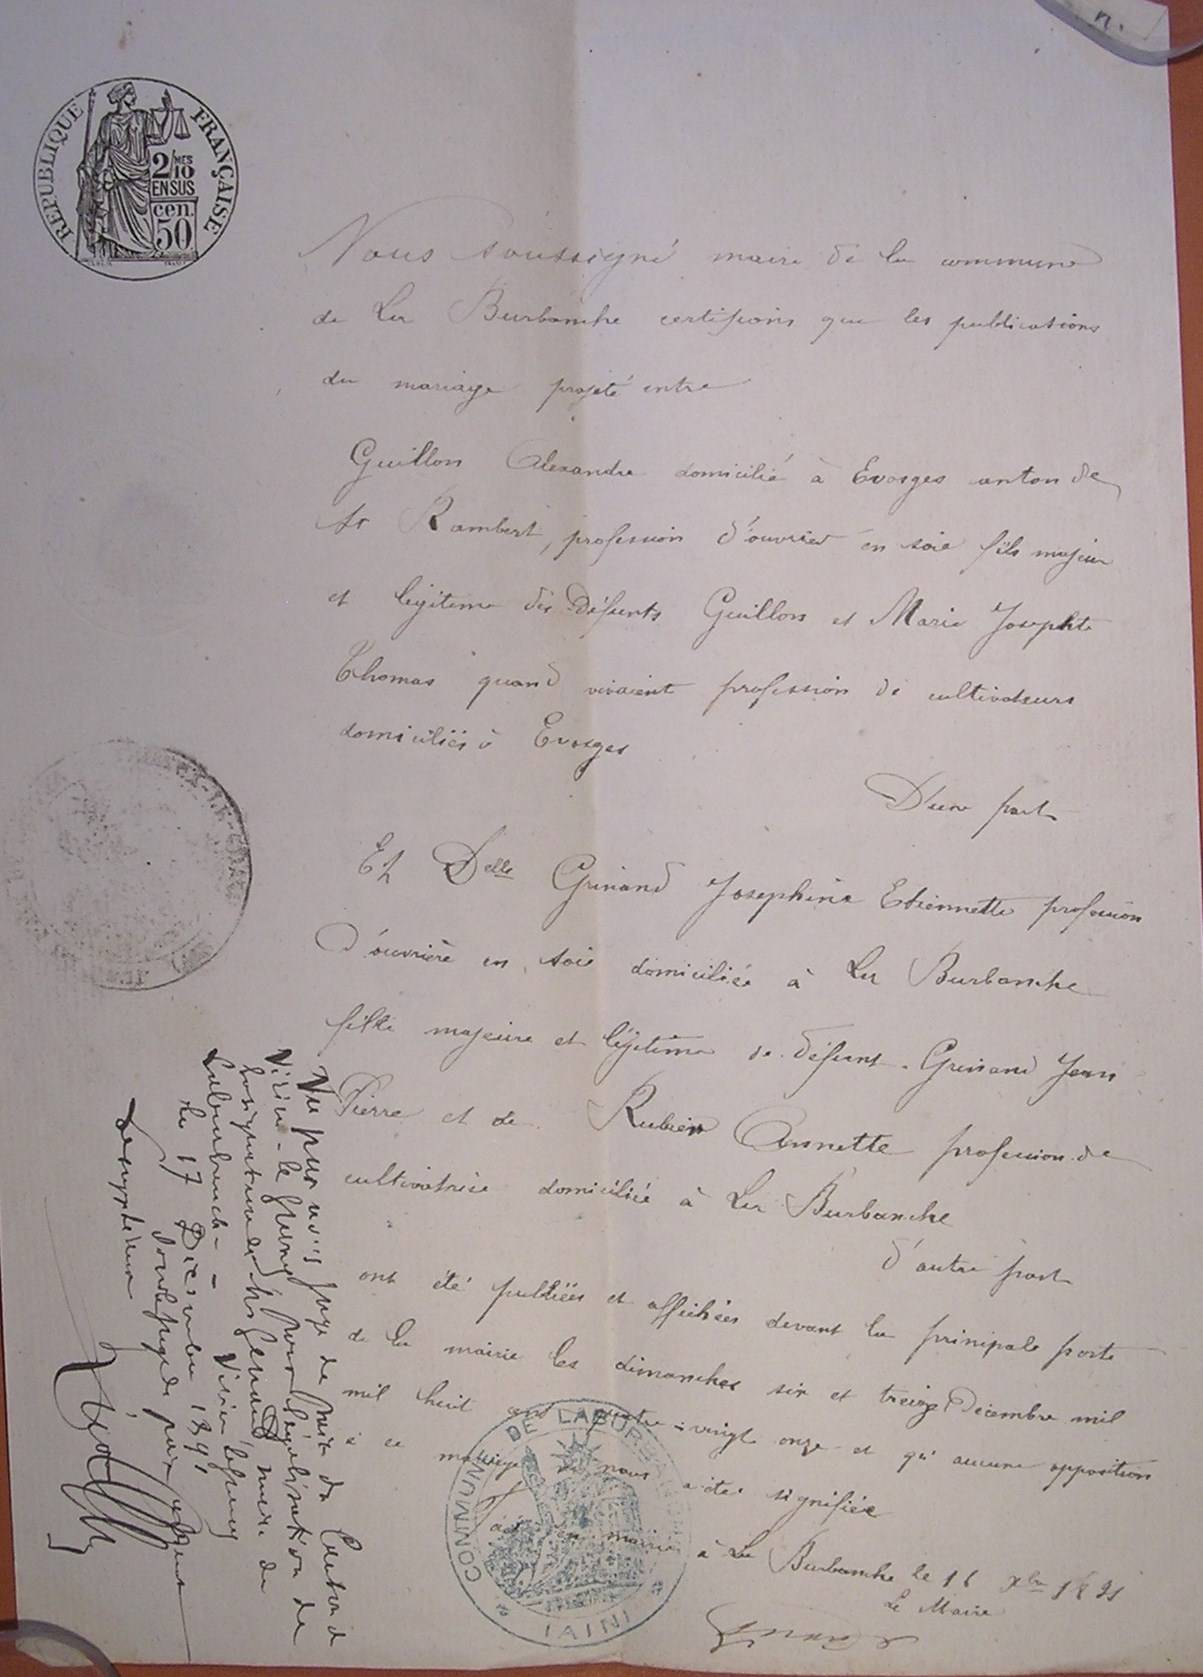 n.
RÉPUBLIQUE FRANÇAISE
2/10MES
EN SUS
50 cen.
Nous soussigné maire de la commune
de La Burbanche certifions que les publications
du mariage projeté entre
Guillon Alexandre domicilié à Evosges canton de
St Rambert, profession d'ouvrier en soie fils majeur
et légitime des défunts Guillon et Marie Josephte
Thomas quand vivaient profession de cultivateurs
domiciliés à Evosges
D'une part
Et Delle Grinand Josephine Etiennette profession
d'ouvrière en soie domiciliée à La Burbanche
fille majeure et légitime de défunt Grinand Jean
Pierre et de Rubier Annette profession de
cultivatrice domiciliée à La Burbanche
d'autre part
ont été publiées et affichées devant la prinipale porte
de la mairie les dimanches six et treize Décembre mil
mil huit cent quatre-vingt onze et qu'aucune opposition
à ce mariage nous a été signifiée
Fait en mairie à La Burbanche le 16 Xbre 1891
Le Maire
COMMUNE DE LABURBANCHE
(AIN)
Vu par nous juge de paix du Canton de
Virieu-le-grand pour légalisation de
la signature de Mr maire de
Laburbanche - Virieu legrand
le 17 Décembre 1891